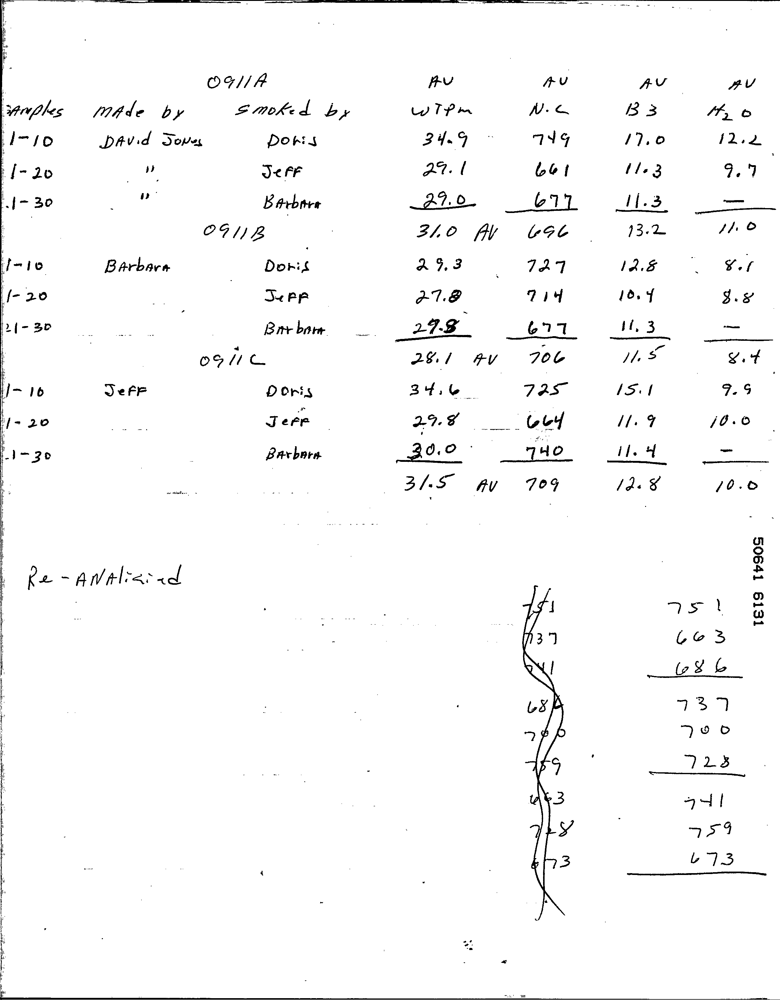 0911A AV AV AV AV
SAmples mAde by smoked by WTPM N.C B3 H2O
1-10 DAVid JONes Doris 34.9 749 17.0 12.2
1-20 " Jeff 29.1 661 11.3 9.7
.1-30 " BArbArA 29.0 677 11.3 —
0911B 31.0 AV 696 13.2 11.0
1-10 BArbArA Doris 29.3 727 12.8 8.1
1-20 Jeff 27.8 714 10.4 8.8
21-30 BArbArA 27.8 677 11.3 —
0911C 28.1 AV 706 11.5 8.4
1-10 Jeff Doris 34.6 725 15.1 9.9
1-20 Jeff 29.8 664 11.9 10.0
.1-30 BArbArA 30.0 740 11.4 —
31.5 AV 709 12.8 10.0
50641 6131
Re-ANAliziad
751 751
737 663
741 686
686 737
700 700
759 728
663 741
728 759
673 673